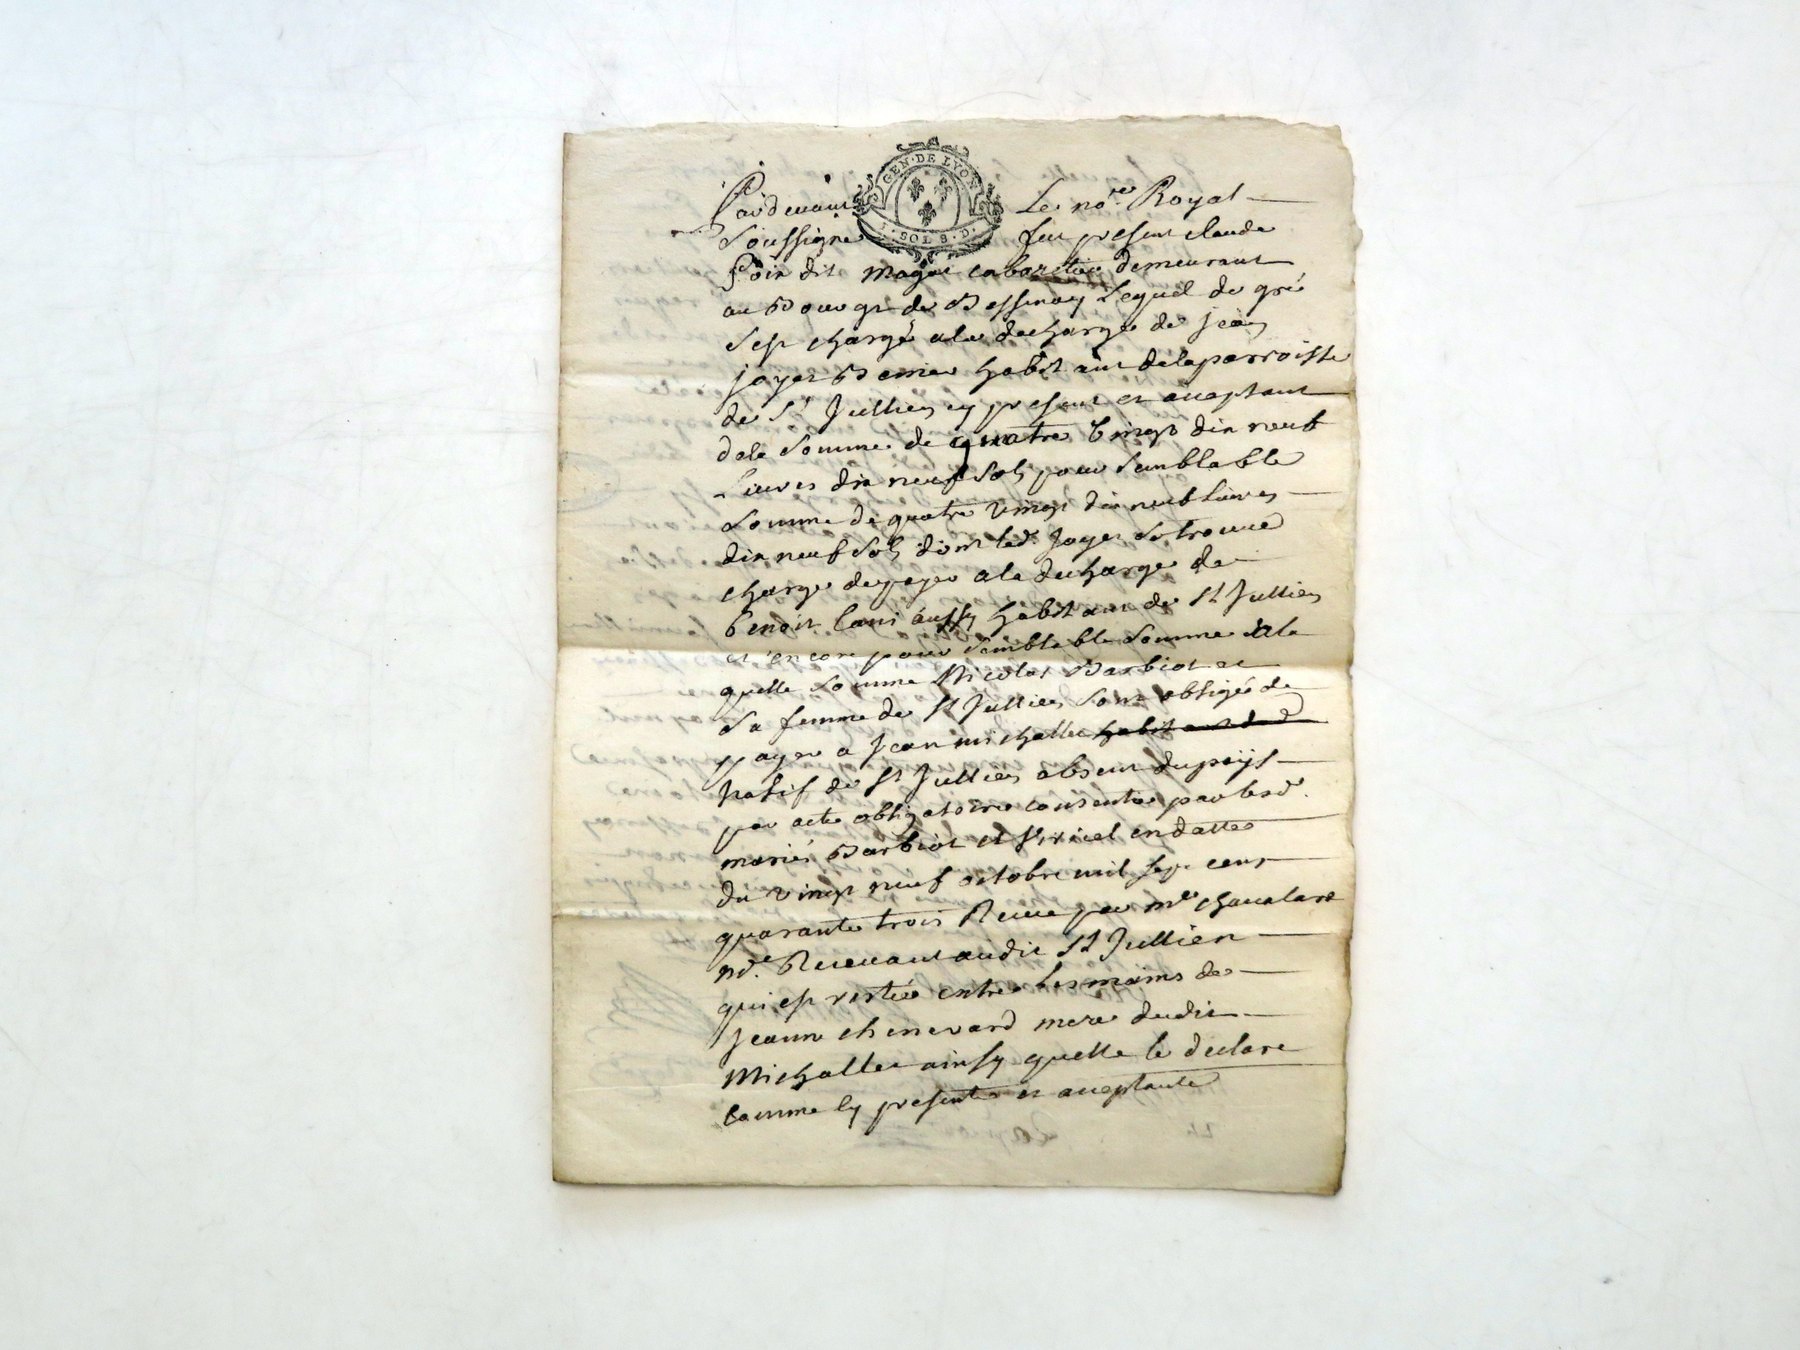 GEN · DE LYON
1 · SOL 8 · D ·
Pardevant Le no.re Royal
soussigne fut present claude
dit cabaretier demeurant
au Bourg de Bessenay Lequel de gré
sest chargé ala decharge de jean
jayet habitant dela parroisse
de St Jullien cy present et aceptant
dela somme de quatre vingt dix neuf
Livres dix neuf sols pour semblable
somme de quatre vingt dix neuf livres
dix neuf sols dont led. Jayet se trouve
charge de payer ala decharge de
benoit aussy habitant de St Jullien
et encore pour semblable somme dela
quelle somme Nicolas Barbiot et
sa femme de St Jullien sont obligée de
payer a Jean michallet habitant dud
natif de St Jullien absent du païs
par acte obligatoire consentie par lesd.
mariés Barbiot et en datte
du vingt neuf octobre mil sept cent
quarante trois Receue par me
no.re Recevant audit St Jullien
qui est restée entre les mains de
Jeanne chenevard mere dudit
Michallet ainsy quelle le declare
comme cy presente et aceptante